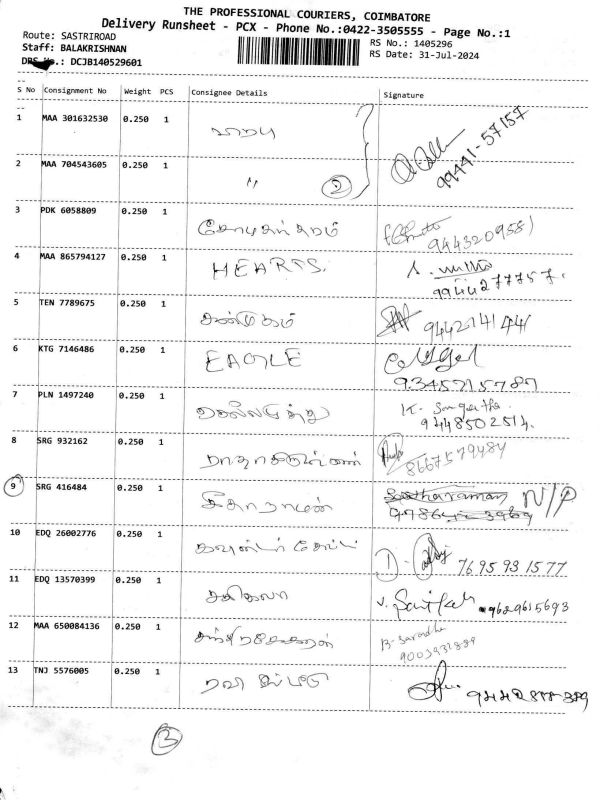 THE PROFESSIONAL COURIERS, COIMBATORE
Delivery Runsheet - PCX - Phone No.:0422-3505555 - Page No.:1
Route: SASTRIROAD
RS No.: 1405296
Staff: BALAKRISHNAN
RS Date: 31-Jul-2024
DRS No.: DCJB140529601
S No Consignment No Weight PCS Consignee Details Signature
1 MAA 301632530 0.250 1
99441-57157
2 MAA 704543605 0.250 1 " 2
3 PDK 6058809 0.250 1
9443209581
4 MAA 865794127 0.250 1 HEARTS.
9944277757.
5 TEN 7789675 0.250 1 சண்முகம்
9442141441
6 KTG 7146486 0.250 1 EAGLE
9345715787
7 PLN 1497240 0.250 1 K. Sangeetha
9448502514.
8 SRG 932162 0.250 1 ராதாகிருஷ்ணன்
8667579484
9 SRG 416484 0.250 1 சீதாராமன் Seetharaman N/P
10 EDQ 26002776 0.250 1 1
7695931577
11 EDQ 13570399 0.250 1 சசிகலா
9629615693
12 MAA 650084136 0.250 1 B. Saradha
13 TNJ 5576005 0.250 1 ரவி